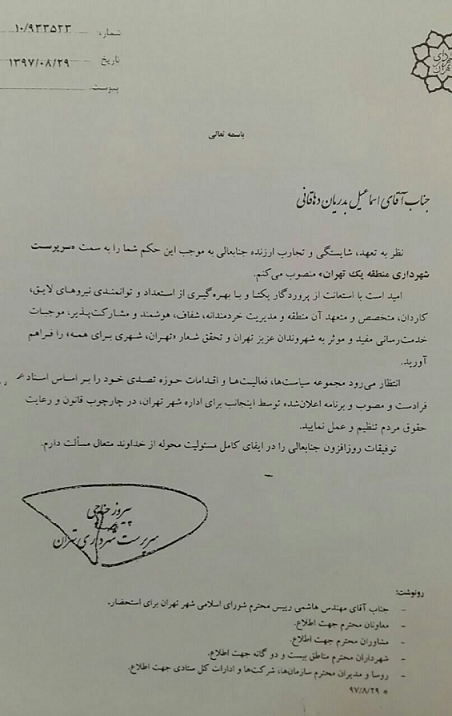 شماره: ۱۰/۹۳۳۵۲۳
تاریخ ۱۳۹۷/۰۸/۲۹
پیوست
باسمه تعالی
جناب آقای اسماعیل بدریان دهاقانی
نظر به تعهد، شایستگی و تجارب ارزنده جنابعالی به موجب این حکم شما را به سمت «سرپرست
شهرداری منطقه یک تهران» منصوب می‌کنم.
امید است با استعانت از پروردگار یکتا و با بهره‌گیری از استعداد و توانمندی نیروهای لایق،
کاردان، متخصص و متعهد آن منطقه و مدیریت خردمندانه، شفاف، هوشمند و مشارکت‌پذیر، موجبات
خدمت‌رسانی مفید و موثر به شهروندان عزیز تهران و تحقق شعار «تهران، شهری برای همه» را فراهم
آورید.
انتظار می‌رود مجموعه سیاست‌ها، فعالیت‌ها و اقدامات حوزه تصدی خود را بر اساس اسناد
فرادست و مصوب و برنامه اعلان‌شده توسط اینجانب برای اداره شهر تهران، در چارچوب قانون و رعایت
حقوق مردم تنظیم و عمل نمایید.
توفیقات روزافزون جنابعالی را در ایفای کامل مسئولیت محوله از خداوند متعال مسألت دارم.
پیروز حناچی
سرپرست شهرداری تهران
رونوشت:
- جناب آقای مهندس هاشمی رییس محترم شورای اسلامی شهر تهران برای استحضار.
- معاونان محترم جهت اطلاع.
- مشاوران محترم جهت اطلاع.
- شهرداران محترم مناطق بیست و دو گانه جهت اطلاع.
- روسا و مدیران محترم سازمان‌ها، شرکت‌ها و ادارات کل ستادی جهت اطلاع.
* ۹۷/۸/۲۹